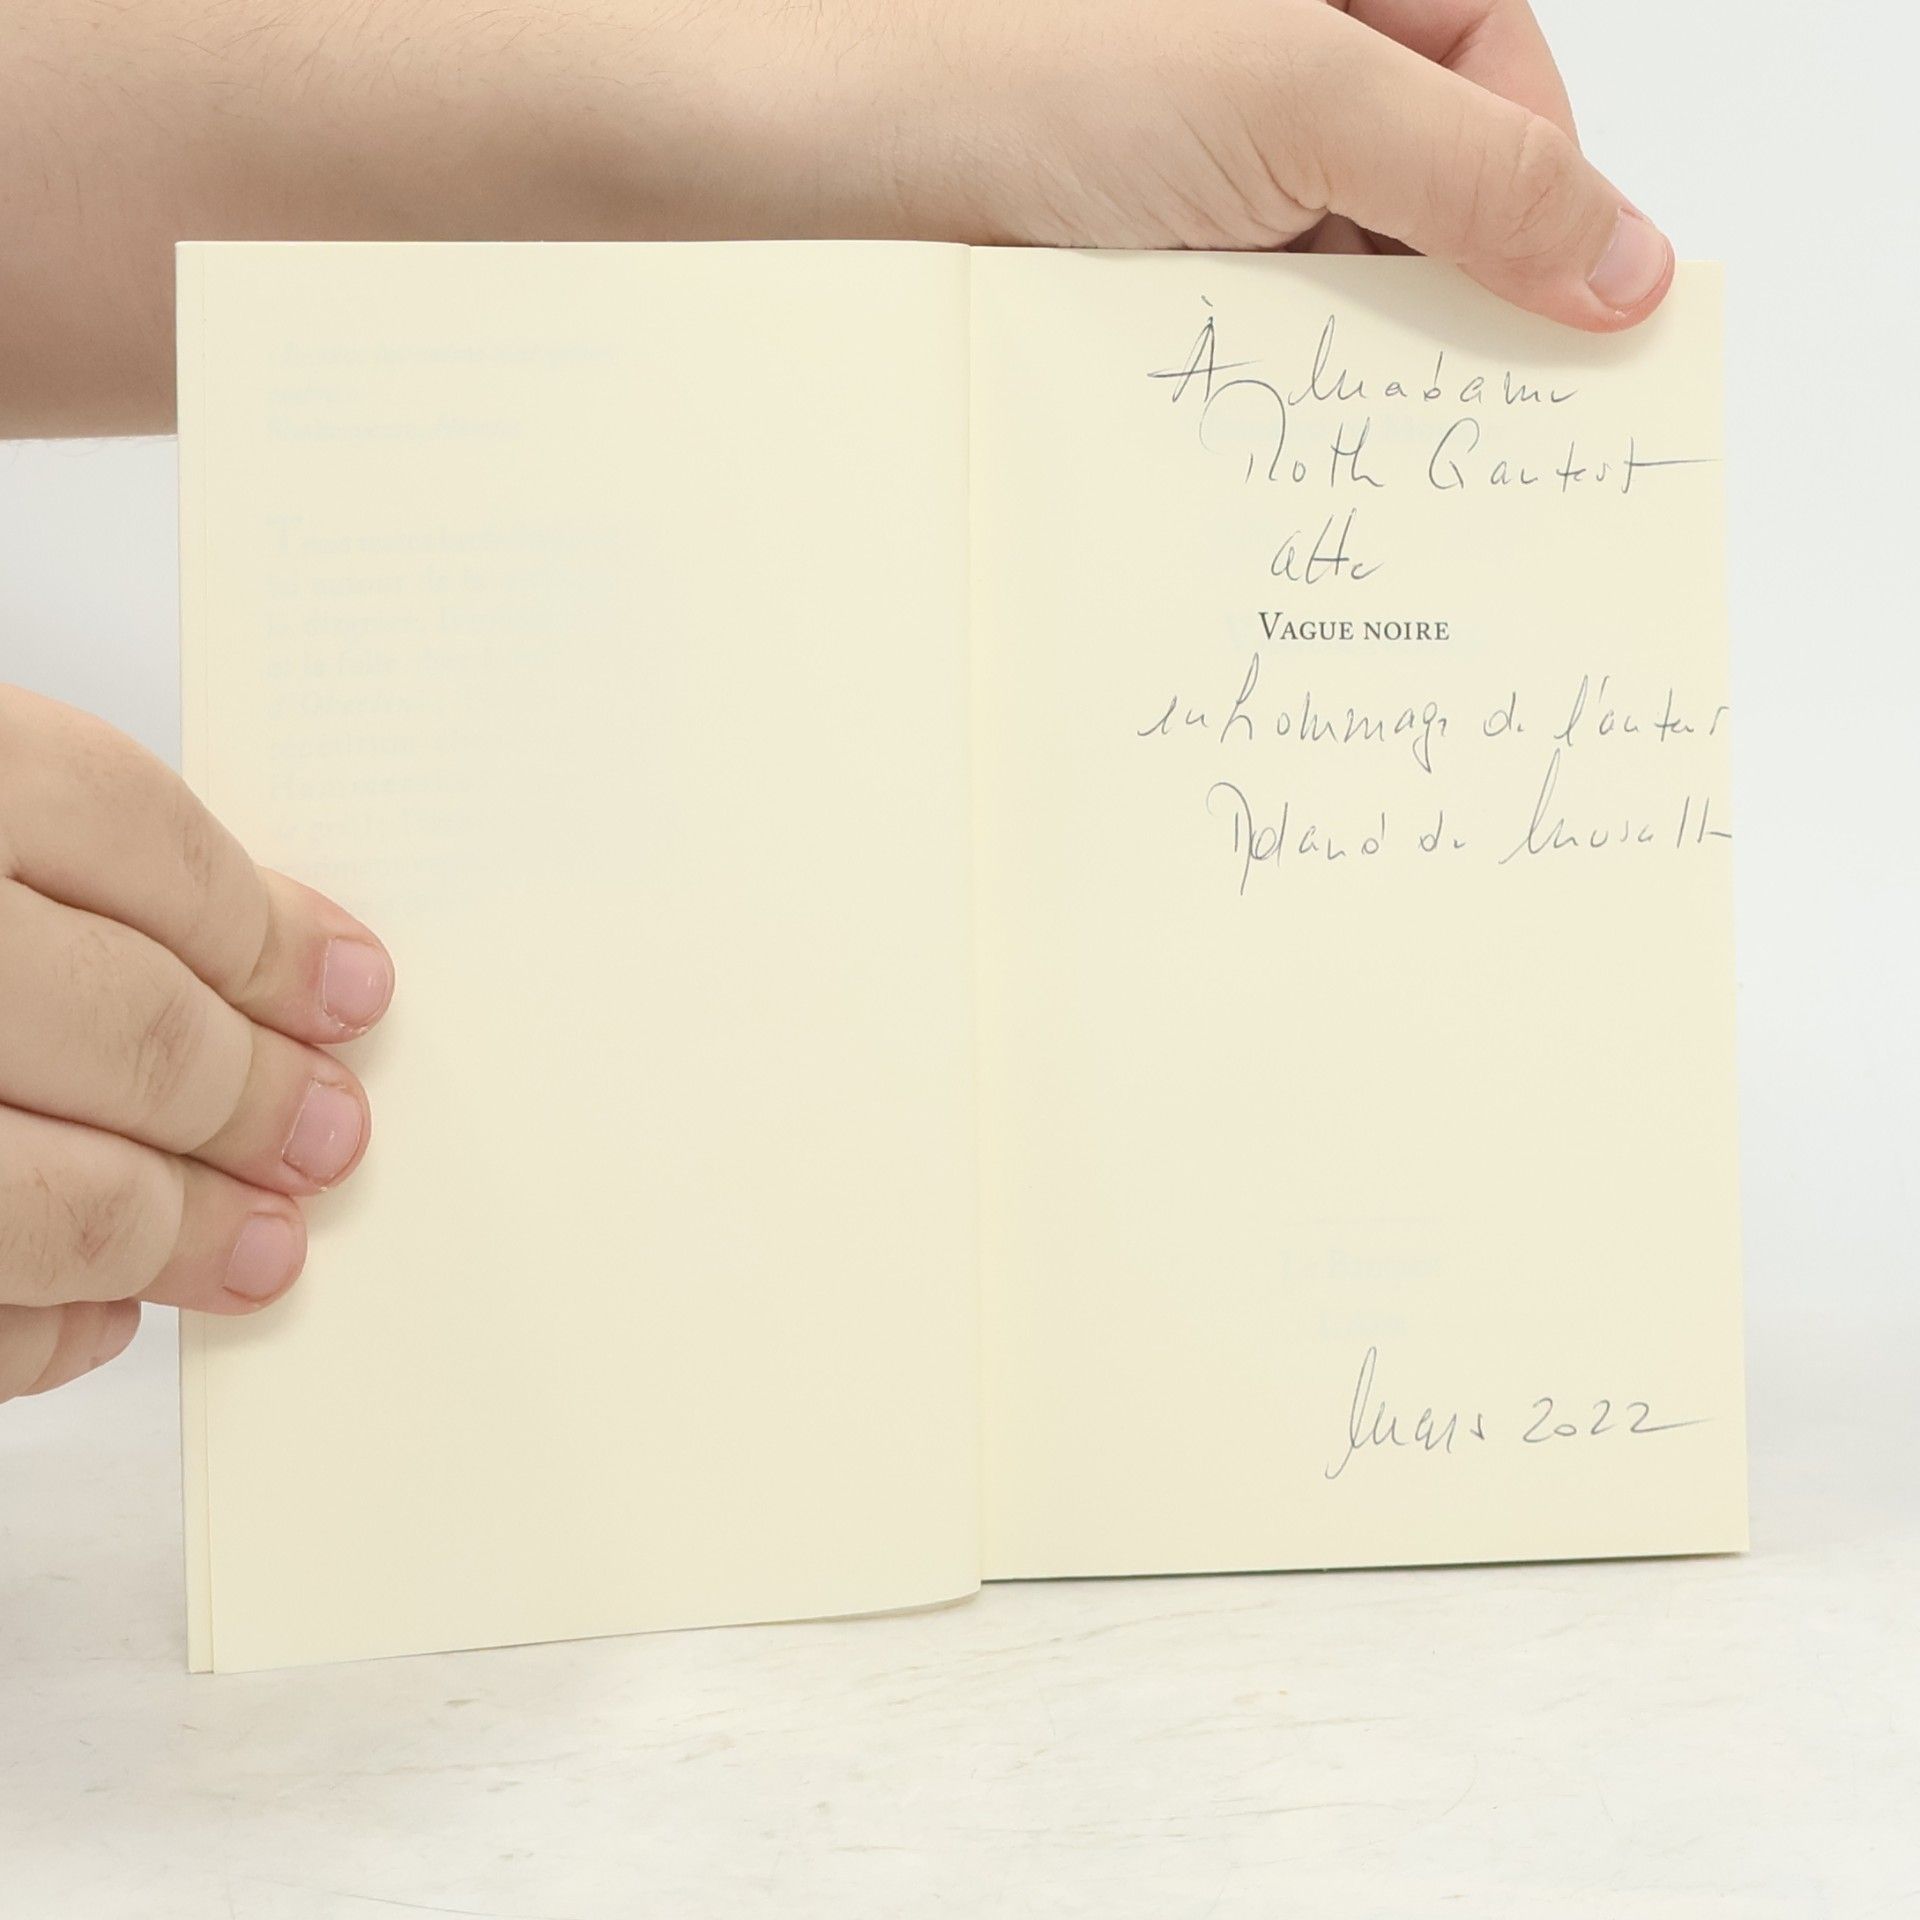 À Madame
Roth Gautest
atte
VAGUE NOIRE
en hommage de l'auteur
Roland de Muralt
Mars 2022